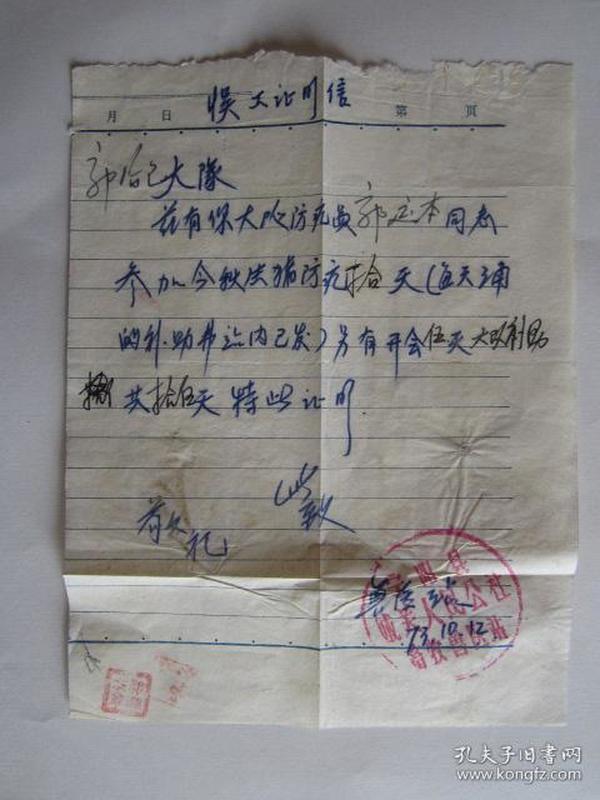 误工证明信
月 日 第 页
郭合己大隊
兹有保大队防疫员郭定本同志
参加今秋庄猪防疫拾天(每天三角
的补助费站内已发)另有开会伍天大队补助
共拾伍天特此证明
此致
敬礼
兽医站
73.10.12
人民公社
孔夫子旧书网
www.kongfz.com